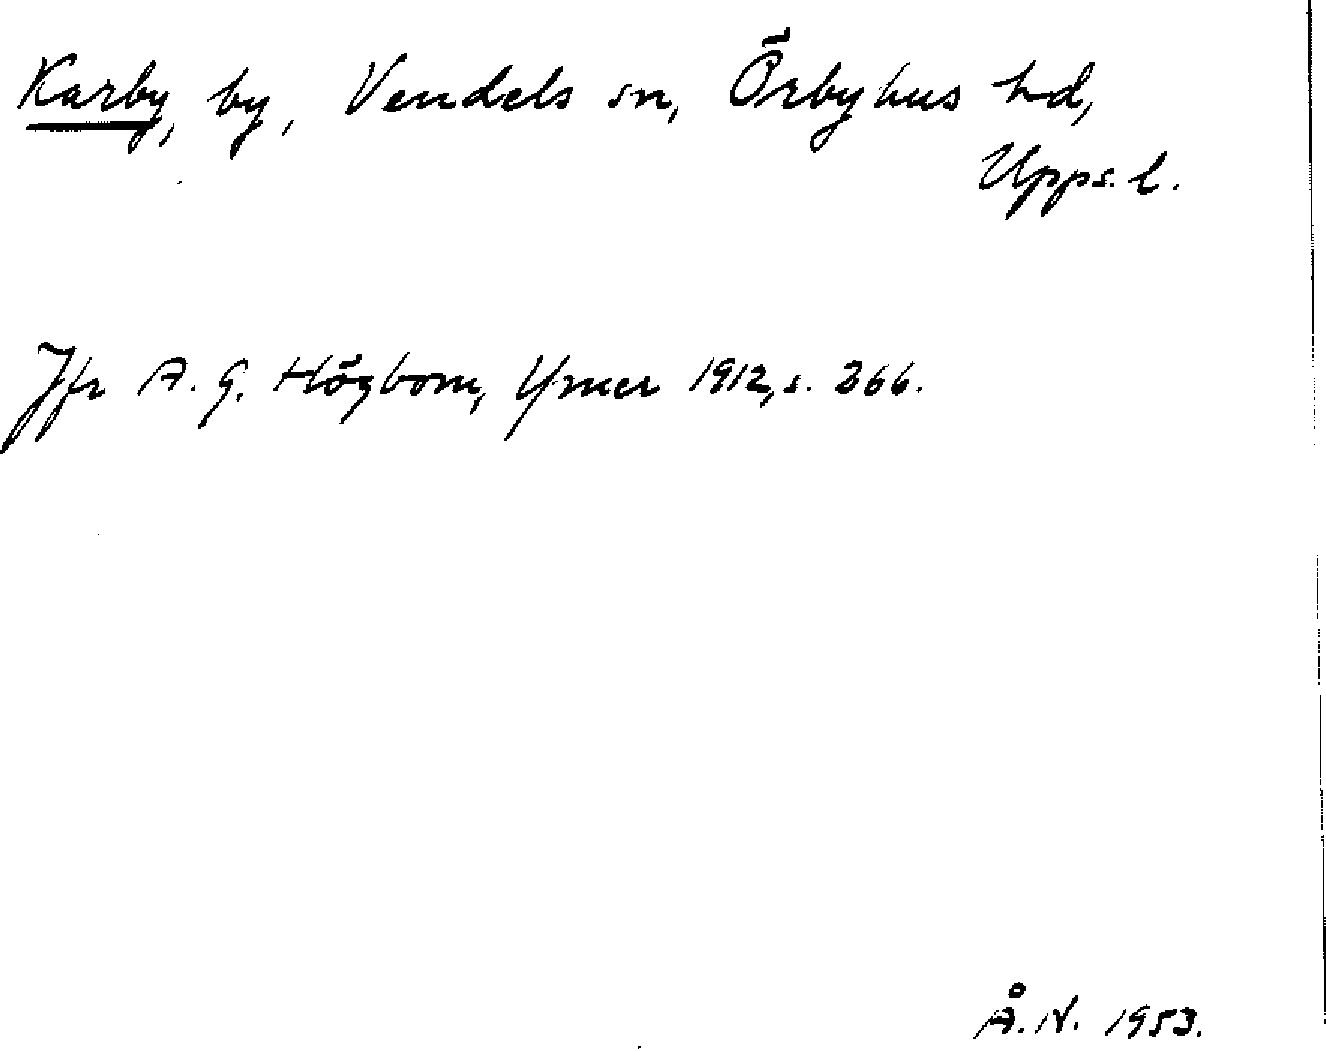 Karby, by, Vendels sn, Örbyhus hd,
Upps. l.
Jfr A. G. Högbom, Ymer 1912, s. 266.
Å. N. 1953.